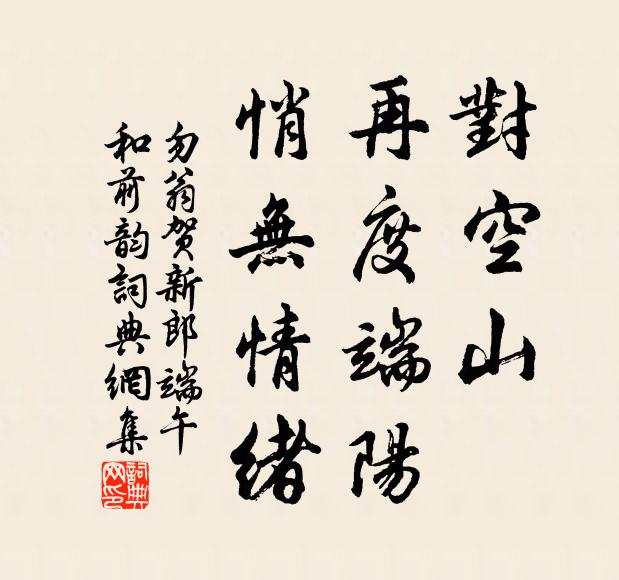 對空山
再度端陽
悄無情緒
勿翁贺新郎端午
和前韵詞典網集
詞典网印